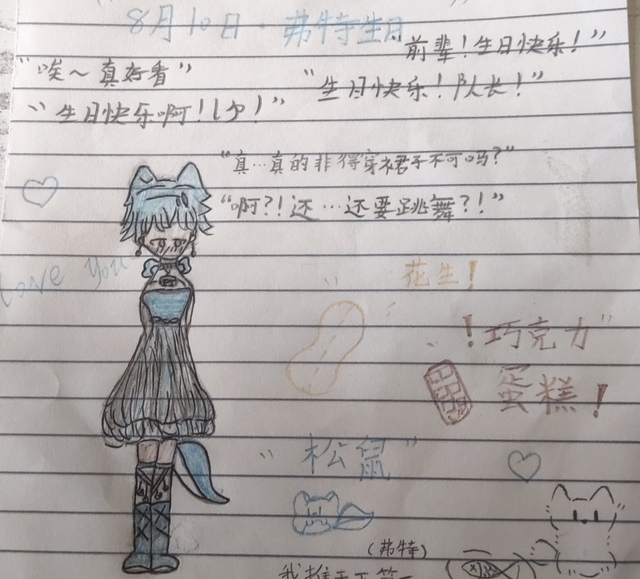 8月10日·弗特生日
“前辈！生日快乐！”
“唉～真好看”
“生日快乐！队长！”
“生日快乐啊！
“真…真的非得穿裙子不可吗？”
“啊？！还…还要跳舞？！”
Love You
花生！
！巧克力”
蛋糕！
“松鼠”
（弗特）
我推天下第一